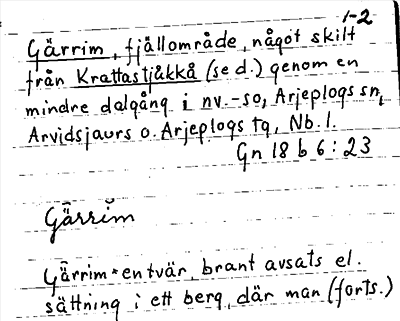 1-2
Gärrim, fjällområde, något skilt
från Krattastjåkkå (se d.) genom en
mindre dalgång i nv.-so, Arjeplogs sn,
Arvidsjaurs o. Arjeplogs tg, Nb. l.
Gn 18 b 6:23
Gärrim
Gärrim = en tvär, brant avsats el.
sättning i ett berg, där man (forts.)